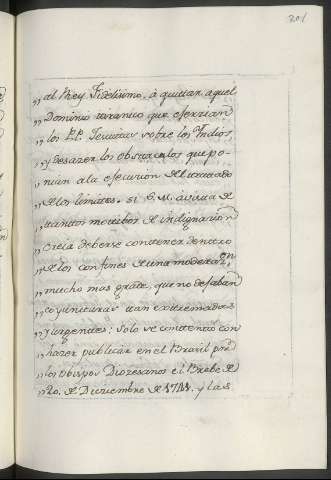 201
„ al Rrey Fidelisimo, à quittar aquel
„ Dominio tiranico que exerzian
„ los P.P. Jesuitas sobre los Indios,
„ y desazer los obstaculos que po-
„ nian ala esecusion del tratado
„ de los limites. si S. M. à vista de
„ tantos motibos de indignasion
„ creia deberse contener dentro
„ de los confines de una moderaz.on
„ mucho mas grãde, que no defaban
„ coyunturas tan extremadas
„ y urgentes: Solo se contentò con
„ hazer publicar en el Brasil por
„ los Obispos Diozesanos el Brebe de
„ 20. de Diziembre de 1741. y las